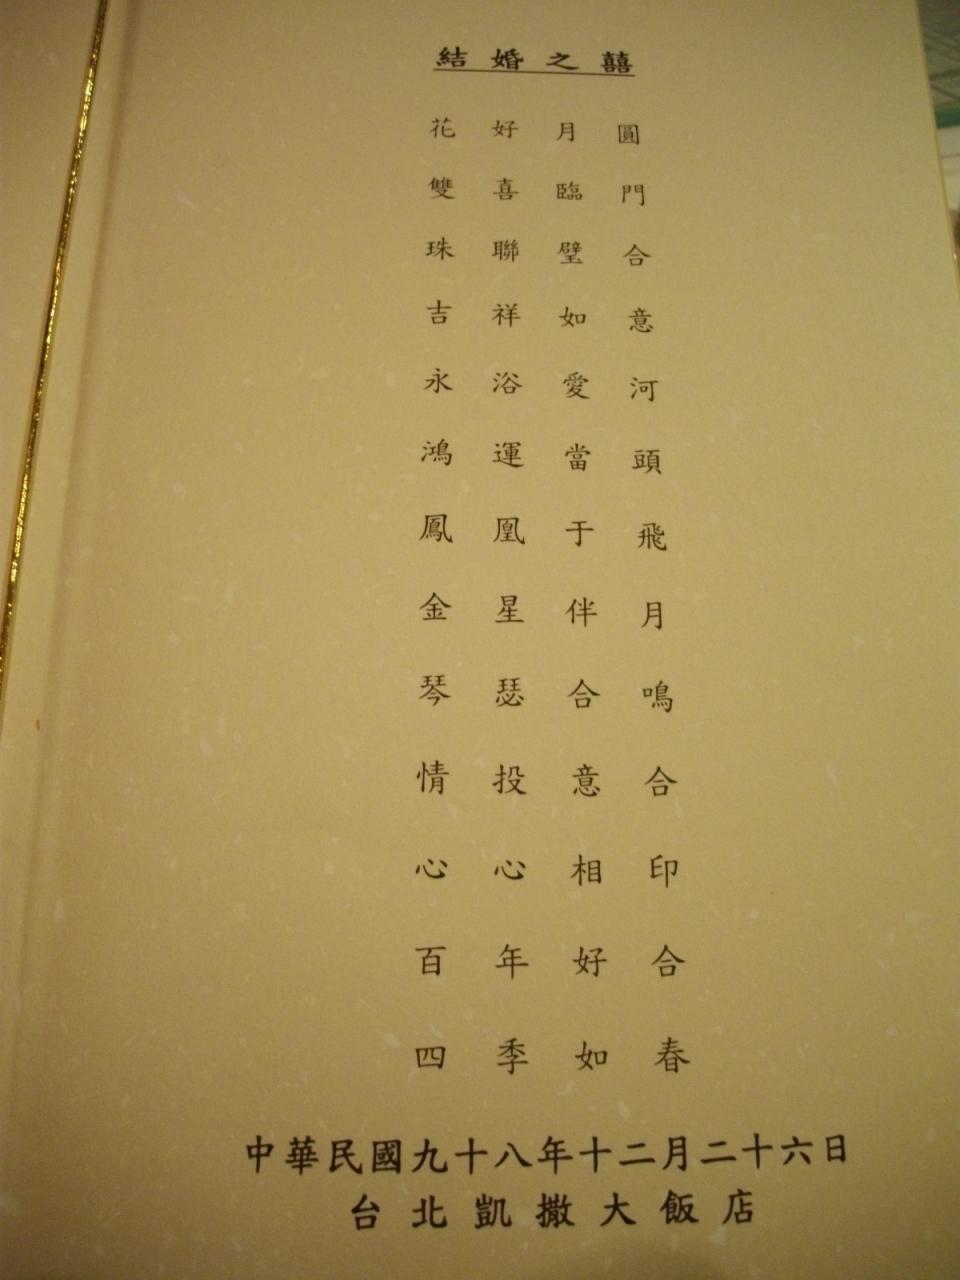 結婚之囍
花好月圓
雙喜臨門
珠聯璧合
吉祥如意
永浴愛河
鴻運當頭
鳳凰于飛
金星伴月
琴瑟合鳴
情投意合
心心相印
百年好合
四季如春
中華民國九十八年十二月二十六日
台北凱撒大飯店